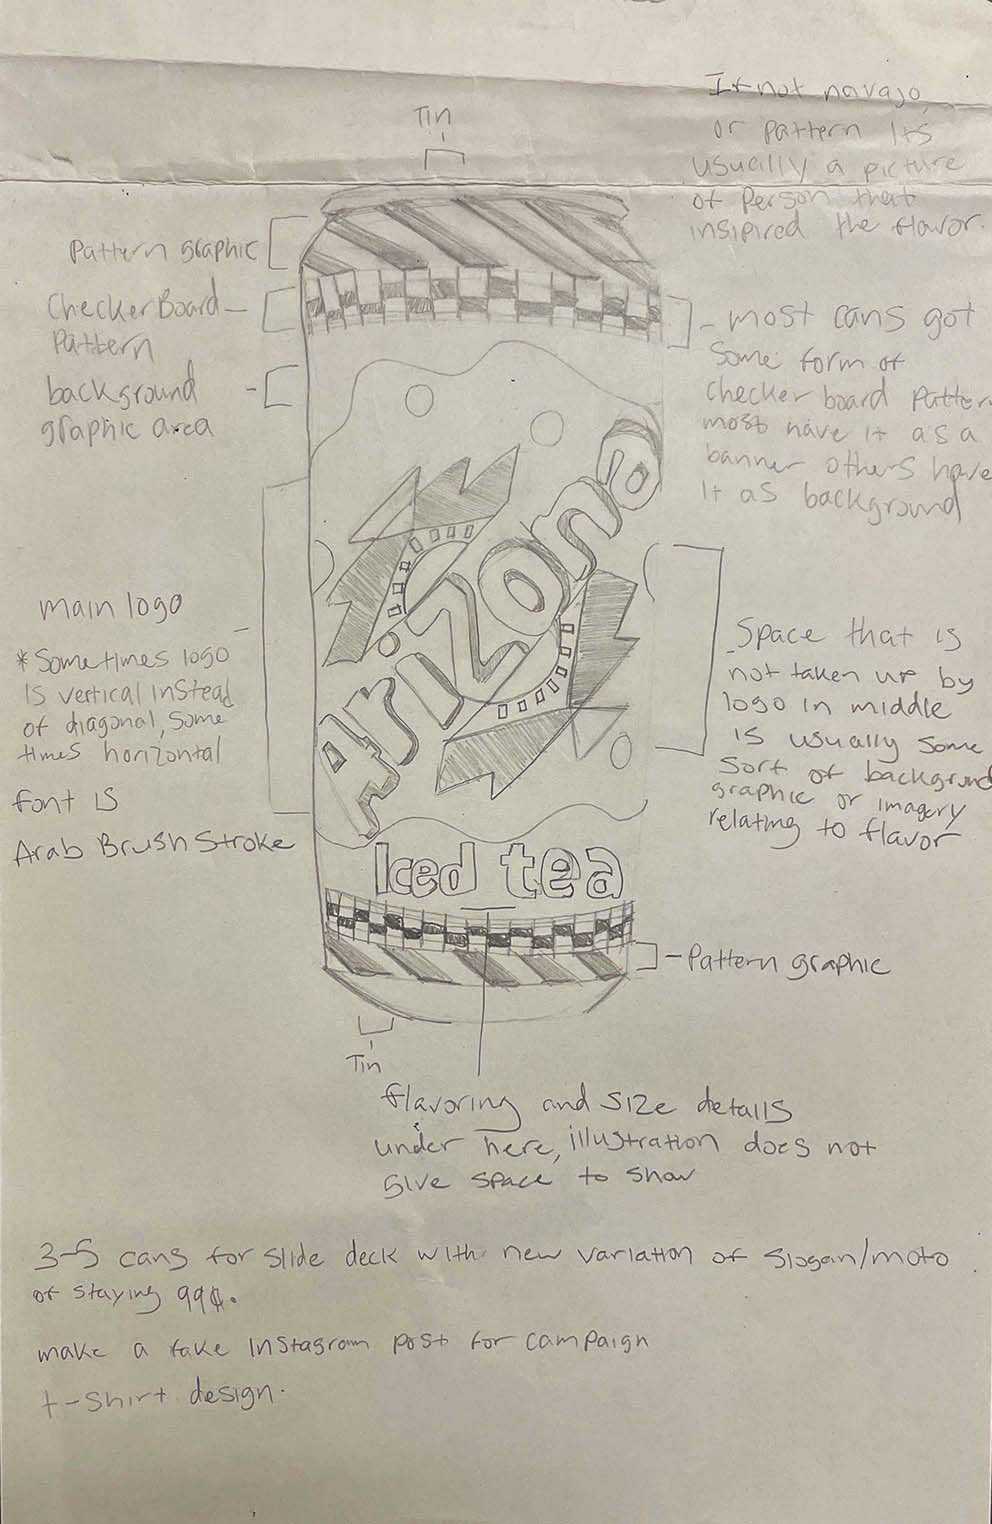 Tin
If not navajo,
or pattern Its
usually a picture
of Person that
insipired the flavor.
Pattern graphic
Checker Board
Pattern
background
graphic area
most cans got
some form of
checker board Pattern
most have it as a
banner others have
it as background
Arizona
main logo
*Sometimes logo
is vertical instead
of diagonal, some
times horizontal
font is
Arab Brush Stroke
Space that is
not taken up by
logo in middle
is usually some
sort of background
graphic or imagery
relating to flavor
Iced tea
Pattern graphic
Tin
flavoring and size details
under here, illustration does not
give space to show
3-5 cans for slide deck with new variation of slogan/moto
of staying 99¢.
make a fake instagram post for campaign
t-shirt design.